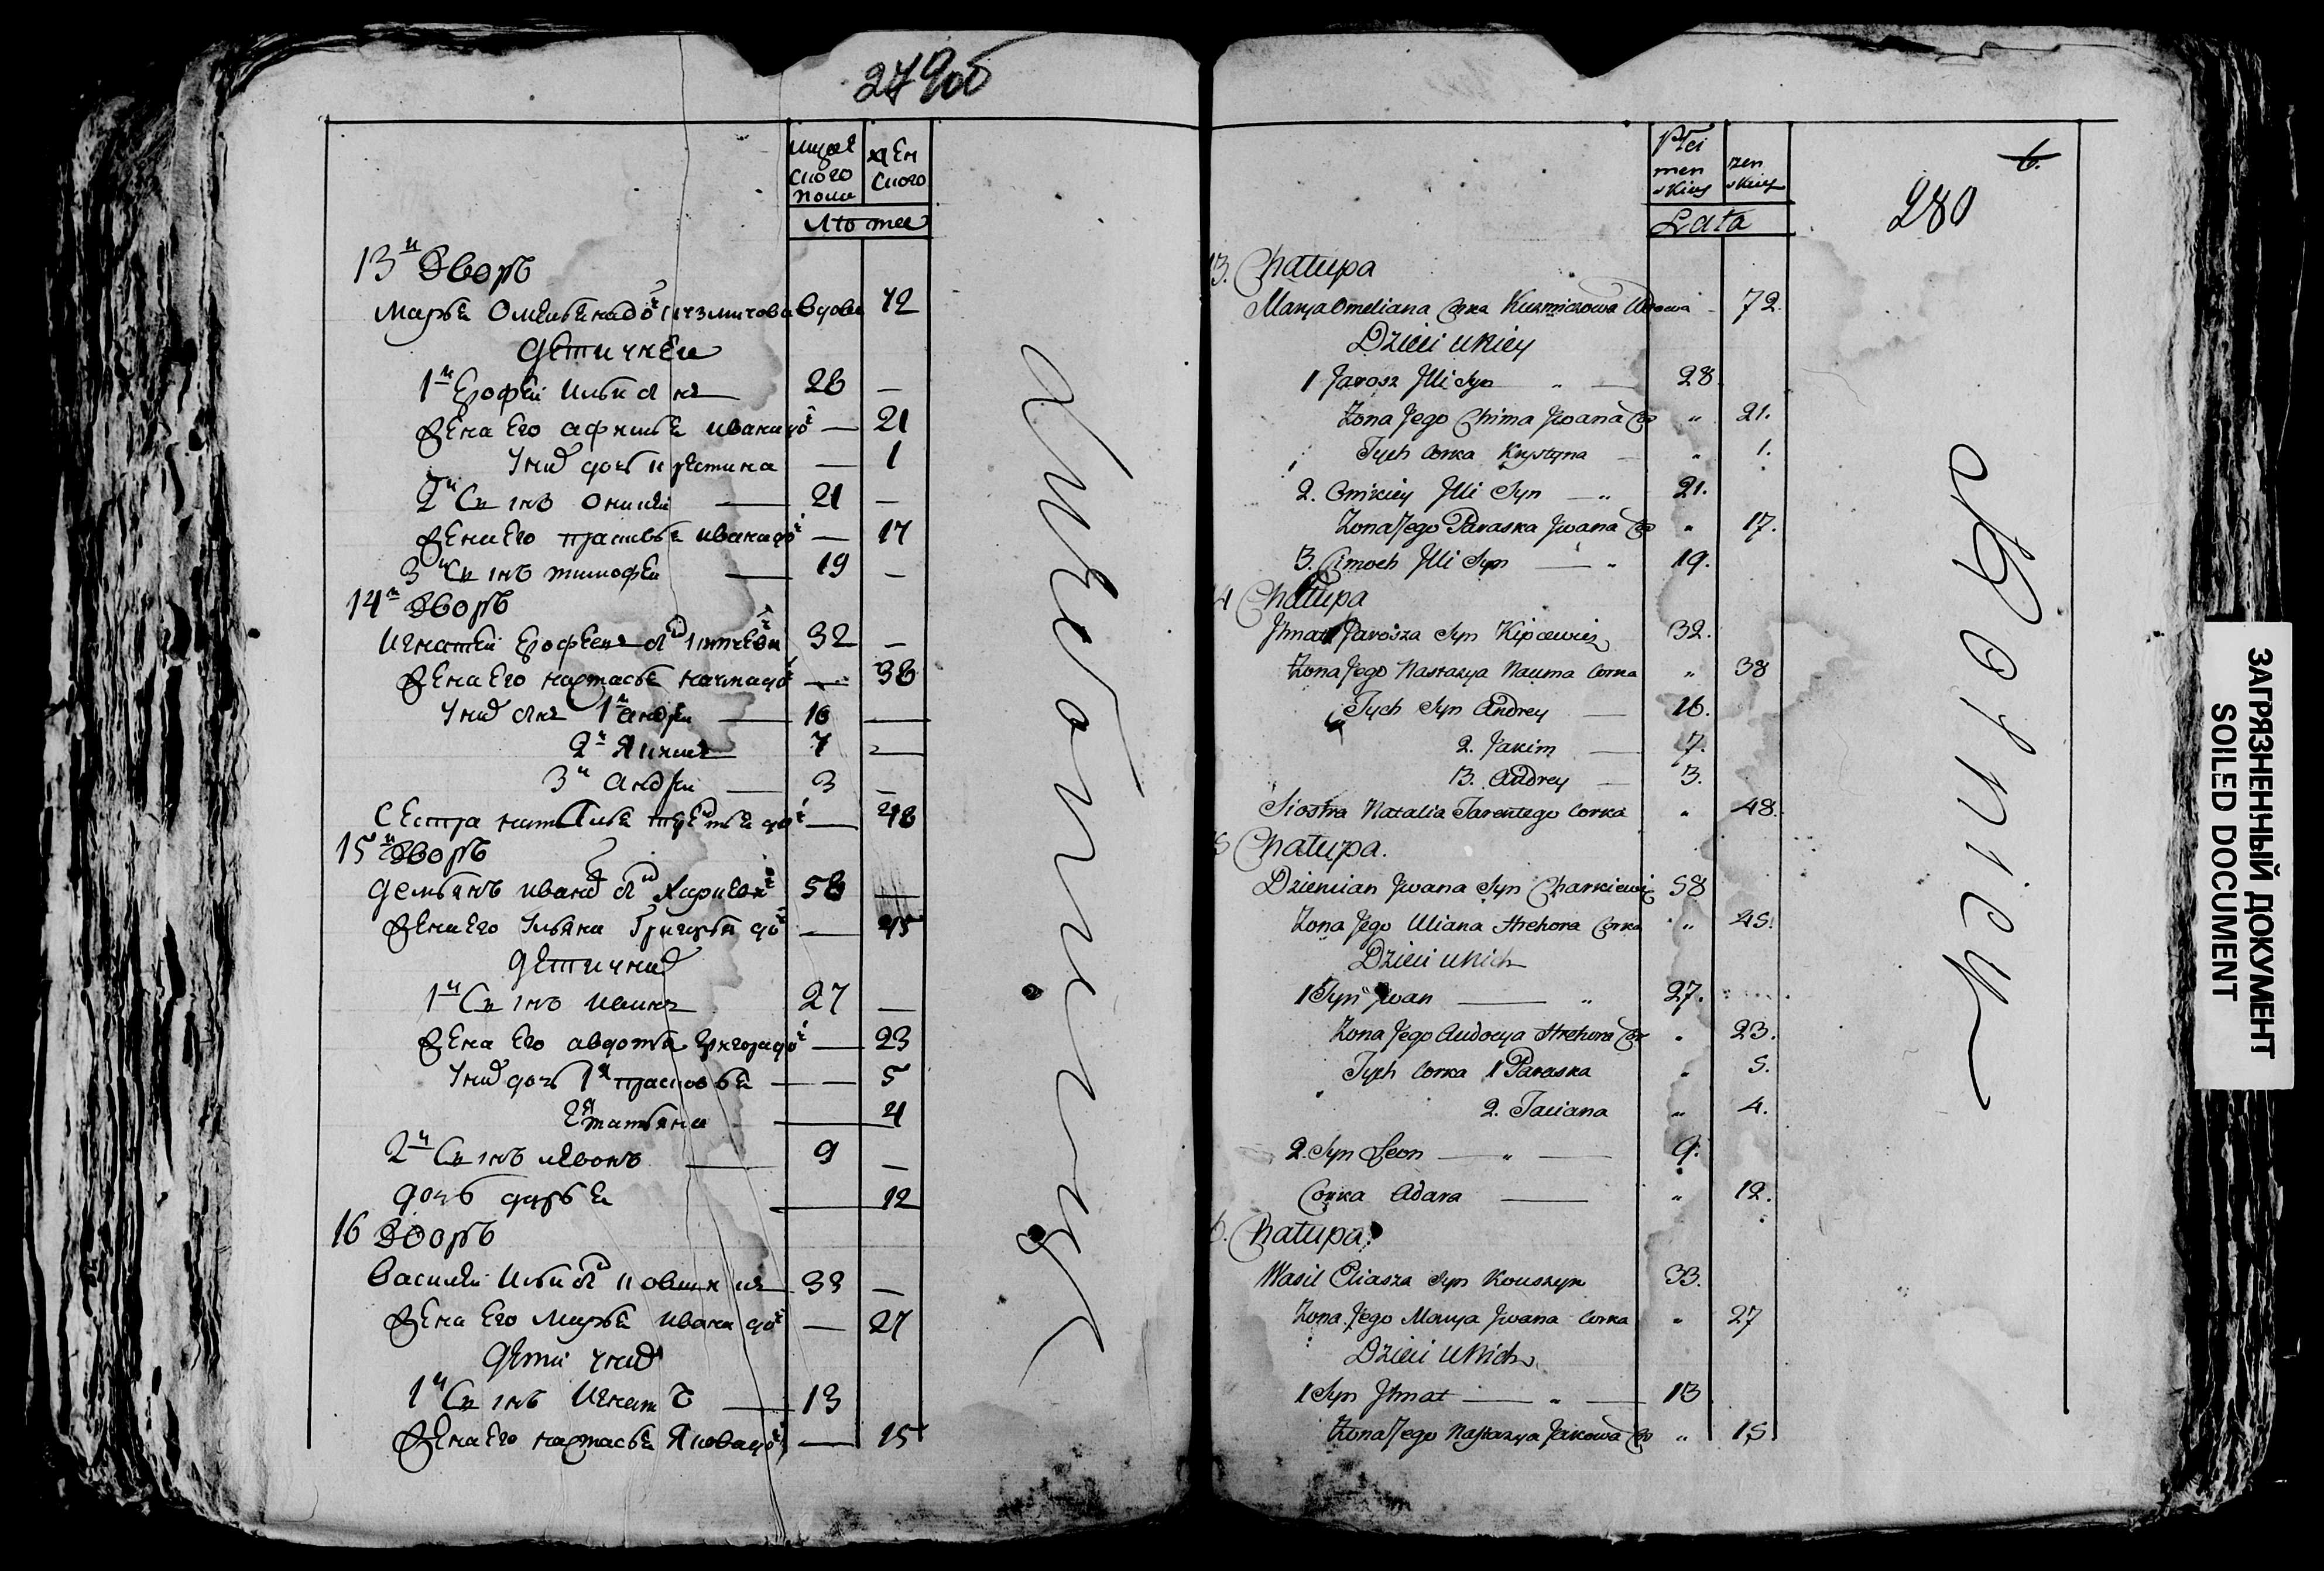 279об
мужескаго пола
женскаго
Лѣта
13й Дворъ
Марья Омельяна до Кузмичова вдова 72
Дети у нея
1й Ерофей Ильи с: 28 —
Жена Его Афимья Ивана до — 21
У них дочь Кристина — 1
2й Сынъ Оникей 21 —
Жена Его Прасковья Ивана до — 17
3й Сынъ Тимофей 19 —
14й Дворъ
Игнатей Ерофея с: 32 —
Жена Его Настасья Наума до — 38
У них с: 1й Андрей 16 —
2й Яким 7 —
3й Андрей 3 —
Сестра Наталья до — 48
15й Дворъ
Демьянъ Ивана с: Харкевич 58 —
Жена Его Ульяна Григорья до — 45
Дети у них
1й Сынъ Иван 27 —
Жена Его Авдотья Григорья до — 23
У них дочь 1я Прасковья — 5
2я Татьяна — 4
2й Сынъ Левонъ 9 —
Дочь Дарья — 12
16 Дворъ
Василей Ильи с: Ковшик 33 —
Жена Его Марья Ивана до — 27
Дети у них
1й Сынъ Игнатъ 13
Жена Его Настасья Якова до — 15
280
6.
Płci
men
skiey
zen
skiey
Lata
13. Chałupa
Marya Omeliana Corka Kuzmiczowa Wdowa 72.
Dzieci u Niey
1 Jarosz Illi Syn „ — 28
Żona Jego Chima Jwana Co „ 21.
Tych Corka Krystyna — „ 1.
2. Onikiey Illi Syn — „ 21.
Żona Jego Paraska Jwana Co „ 17.
3. Cimoch Illi Syn — „ 19.
14 Chałupa
Jhnat Jarosza Syn Kipcewicz 32.
Żona Jego Nastazya Nauma Corka „ 38
Tych Syn Andrey — 16.
2. Jakim — 7.
3. Andrey — 3.
Siostra Natalia Tarentego Corka „ 48.
15 Chałupa.
Dziemian Jwana Syn Charkiewicz 58
Żona Jego Uliana Hrehora Corka „ 45.
Dzieci u Nich
1 Syn Jwan — „ 27.
Żona Jego Audocya Hrehora Cor „ 23.
Tych Corka 1 Paraska „ 5.
2. Taciana „ 4.
2. Syn Leon — „ — 9.
Corka Adara — „ 12.
16. Chałupa.
Wasil Eliasza Syn Kouszyk 33.
Żona Jego Marya Jwana Corka „ 27
Dzieci u Nich
1 Syn Jhnat — „ — 13
Żona Jego Nastazya Jakowa Co „ 15
ЗАГРЯЗНЕННЫЙ ДОКУМЕНТ
SOILED DOCUMENT